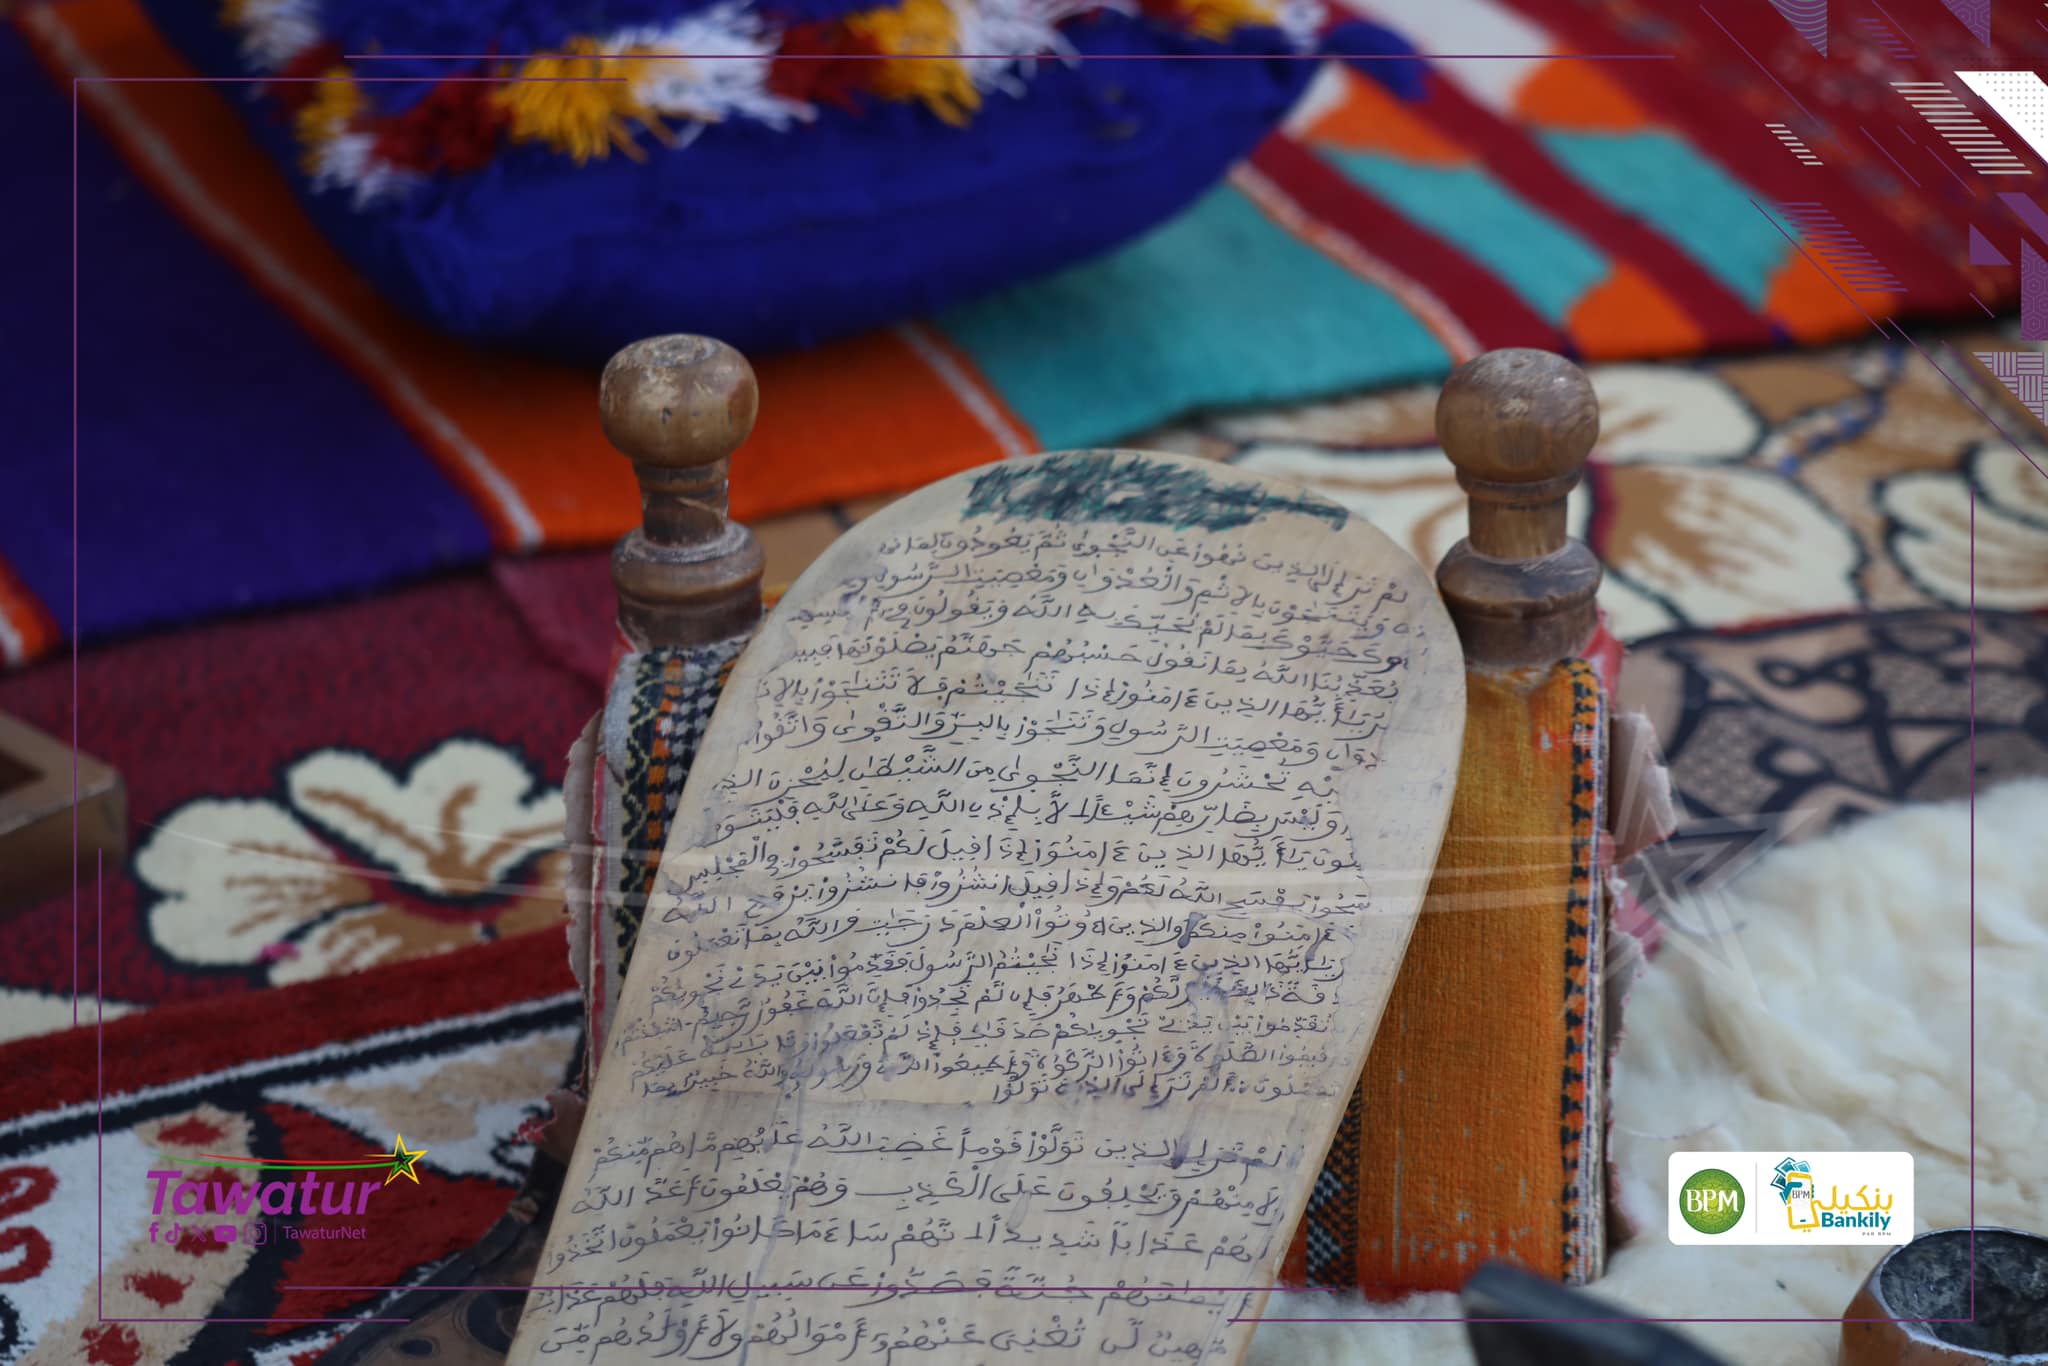 لَمْ تَرَ إِلَى الذِينَ نُهُوا عَنِ النَّجْوىٰ ثُمَّ يَعُودُونَ لِمَا
وَيَتَنَٰجَوْنَ بِالاِثْمِ وَالْعُدْوَٰنِ وَمَعْصِيَتِ الرَّسُولِ
حَيَّوْكَ بِمَا لَمْ يُحَيِّكَ بِهِ اللَّهُ وَيَقُولُونَ فِي
يُعَذِّبُنَا اللَّهُ بِمَا نَقُولُ حَسْبُهُمْ جَهَنَّمُ يَصْلَوْنَهَا فَبِيسَ
يَٰأَيُّهَا الذِينَ ءَامَنُوا إِذَا تَنَٰجَيْتُمْ فَلَا تَتَنَٰجَوْا بِالاِثْ
وَمَعْصِيَتِ الرَّسُولِ وَتَنَٰجَوْا بِالبِرِّ وَالتَّقْوىٰ وَاتَّقُوا
تُحْشَرُونَ إِنَّمَا النَّجْوىٰ مِنَ الشَّيْطَٰنِ لِيُحْزِنَ الذِينَ
وَلَيْسَ بِضَارِّهِمْ شَيْئًا اِلَّا بِإِذْنِ اللَّهِ وَعَلَى اللَّهِ فَلْيَتَوَ
يَٰأَيُّهَا الذِينَ ءَامَنُوا إِذَا قِيلَ لَكُمْ تَفَسَّحُوا فِي الْمَجْلِسِ
يَفْسَحِ اللَّهُ لَكُمْ وَإِذَا قِيلَ انشُزُوا فَانشُزُوا يَرْفَعِ اللَّهُ
ءَامَنُوا مِنكُمْ وَالذِينَ أُوتُوا الْعِلْمَ دَرَجَٰتٍ وَاللَّهُ بِمَا تَعْمَلُونَ
يَٰأَيُّهَا الذِينَ ءَامَنُوا إِذَا نَٰجَيْتُمُ الرَّسُولَ فَقَدِّمُوا بَيْنَ يَدَيْ نَجْوىٰكُمْ
لَّكُمْ وَأَطْهَرُ فَإِن لَّمْ تَجِدُوا فَإِنَّ اللَّهَ غَفُورٌ رَّحِيمٌ ءَاشْفَقْتُمُ
تُقَدِّمُوا بَيْنَ يَدَيْ نَجْوىٰكُمْ صَدَقَٰتٍ فَإِذْ لَمْ تَفْعَلُوا وَتَابَ اللَّهُ عَلَيْكُمْ
فَأَقِيمُوا الصَّلَوٰةَ وَءَاتُوا الزَّكَوٰةَ وَأَطِيعُوا اللَّهَ وَرَسُولَهُ وَاللَّهُ خَبِيرٌ بِمَا
تَعْمَلُونَ أَلَمْ تَرَ إِلَى الذِينَ تَوَلَّوْا
لَمْ تَرَ إِلَى الذِينَ تَوَلَّوْا قَوْماً غَضِبَ اللَّهُ عَلَيْهِم مَّا هُم مِّنكُمْ
وَلَا مِنْهُمْ وَيَحْلِفُونَ عَلَى الْكَذِبِ وَهُمْ يَعْلَمُونَ أَعَدَّ اللَّهُ
لَهُمْ عَذَاباً شَدِيداً اِنَّهُمْ سَاءَ مَا كَانُوا يَعْمَلُونَ اتَّخَذُوا
أَيْمَٰنَهُمْ جُنَّةً فَصَدُّوا عَن سَبِيلِ اللَّهِ فَلَهُمْ عَذَابٌ
مُّهِينٌ لَّن تُغْنِيَ عَنْهُمُ أَمْوَٰلُهُمْ وَلَا أَوْلَٰدُهُم مِّنَ
Tawatur
TawaturNet
BPM
BPM
بنكيلي
Bankily
PAR BPM